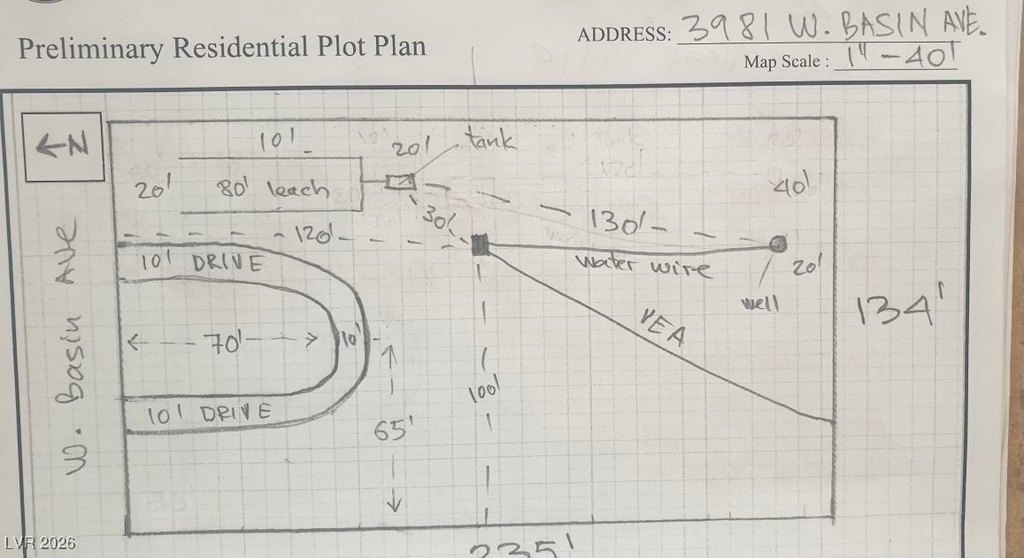 Preliminary Residential Plot Plan
ADDRESS: 3981 W. BASIN AVE.
Map Scale : 1" - 40'
← N
10'
20'
tank
20'
80' leach
40'
30'
130'
120'
10' DRIVE
water wire
20'
well
W. Basin AVE
134'
VEA
70'
10'
100'
10' DRIVE
65'
235'
LVR 2026